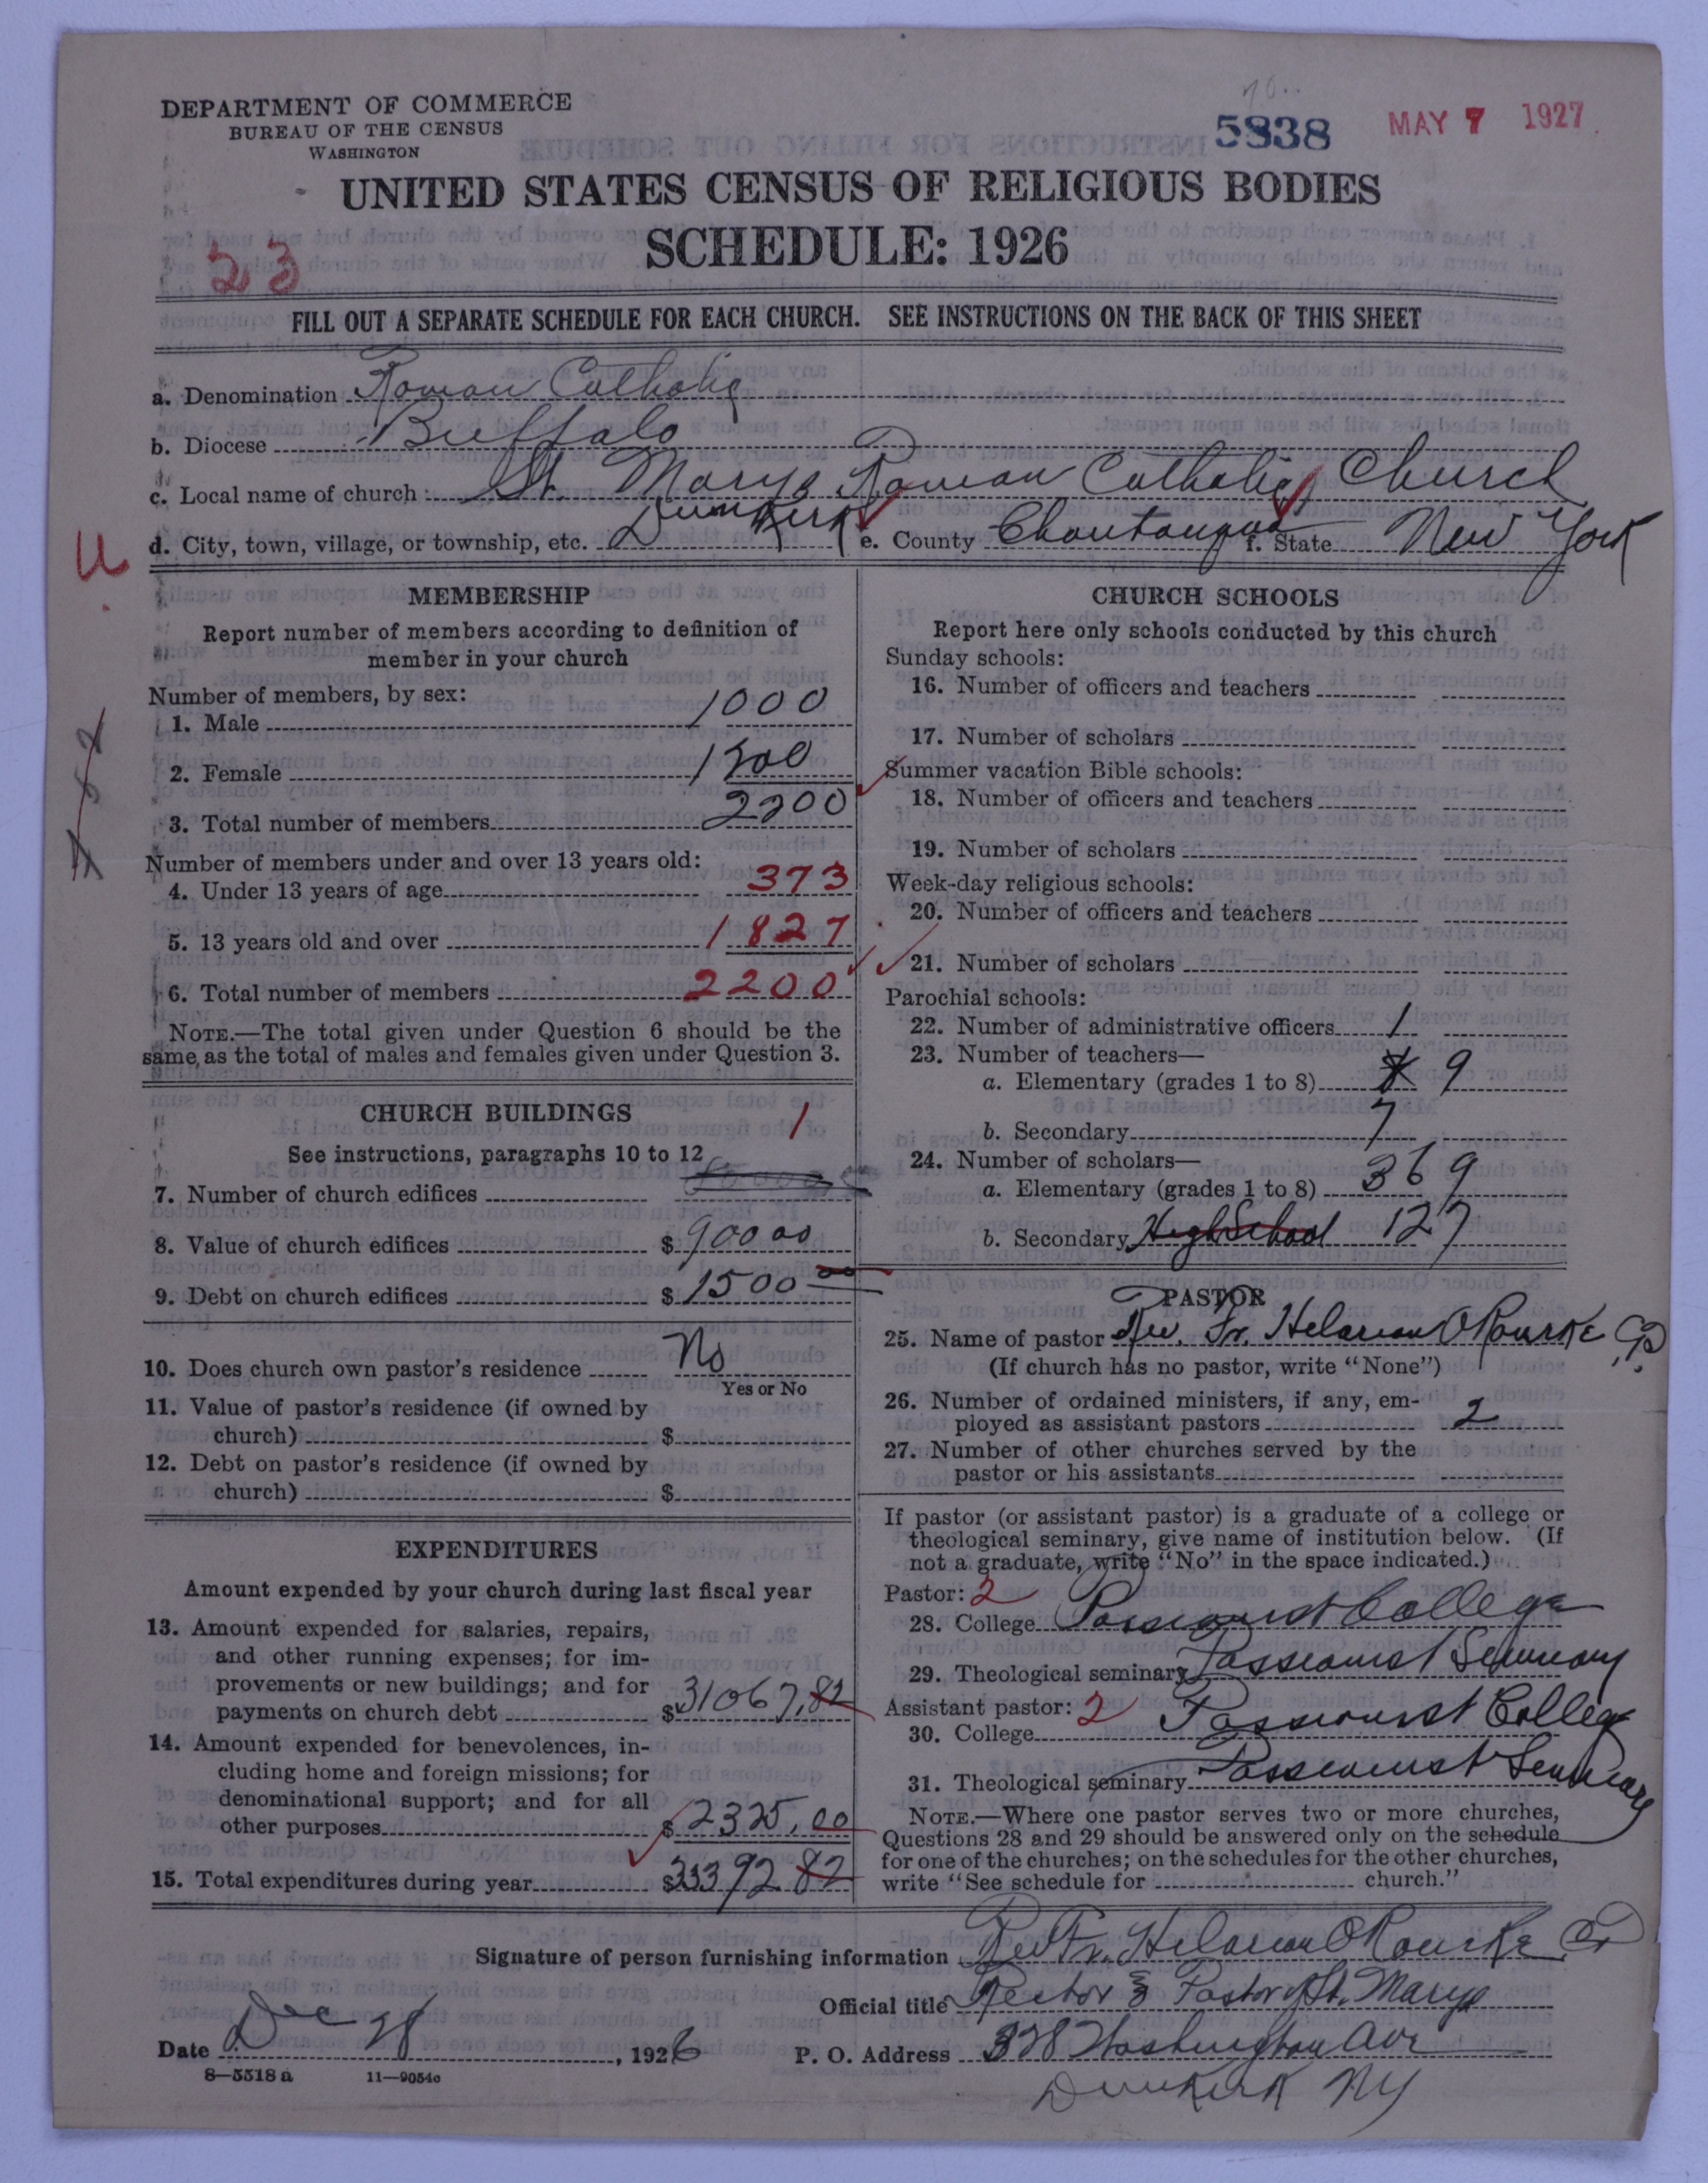 DEPARTMENT OF COMMERCE
BUREAU OF THE CENSUS
WASHINGTON
5838
MAY 7 1927
UNITED STATES CENSUS OF RELIGIOUS BODIES
SCHEDULE: 1926
23
FILL OUT A SEPARATE SCHEDULE FOR EACH CHURCH. SEE INSTRUCTIONS ON THE BACK OF THIS SHEET
a. Denomination Roman Catholic
b. Diocese Buffalo
c. Local name of church St. Marys Roman Catholic Church
d. City, town, village, or township, etc. Dunkirk e. County Chautauqua f. State New York
U
MEMBERSHIP
Report number of members according to definition of
member in your church
Number of members, by sex:
1. Male 1000
2. Female 1200
3. Total number of members 2200
Number of members under and over 13 years old:
4. Under 13 years of age 373
5. 13 years old and over 1827
6. Total number of members 2200
NOTE.—The total given under Question 6 should be the
same as the total of males and females given under Question 3.
CHURCH BUILDINGS
See instructions, paragraphs 10 to 12
7. Number of church edifices 1
8. Value of church edifices $ 90000
9. Debt on church edifices $ 1500 00
10. Does church own pastor's residence No
Yes or No
11. Value of pastor's residence (if owned by
church) $
12. Debt on pastor's residence (if owned by
church) $
EXPENDITURES
Amount expended by your church during last fiscal year
13. Amount expended for salaries, repairs,
and other running expenses; for im-
provements or new buildings; and for
payments on church debt $31067.82
14. Amount expended for benevolences, in-
cluding home and foreign missions; for
denominational support; and for all
other purposes $2325.00
15. Total expenditures during year $33392.82
CHURCH SCHOOLS
Report here only schools conducted by this church
Sunday schools:
16. Number of officers and teachers
17. Number of scholars
Summer vacation Bible schools:
18. Number of officers and teachers
19. Number of scholars
Week-day religious schools:
20. Number of officers and teachers
21. Number of scholars
Parochial schools:
22. Number of administrative officers 1
23. Number of teachers—
a. Elementary (grades 1 to 8) 9
b. Secondary 7
24. Number of scholars—
a. Elementary (grades 1 to 8) 369
b. Secondary High School 127
PASTOR
25. Name of pastor Rev. Fr. Hilarion O'Rourke C.P.
(If church has no pastor, write "None")
26. Number of ordained ministers, if any, em-
ployed as assistant pastors 2
27. Number of other churches served by the
pastor or his assistants
If pastor (or assistant pastor) is a graduate of a college or
theological seminary, give name of institution below. (If
not a graduate, write "No" in the space indicated.)
Pastor: 2
28. College Passionist College
29. Theological seminary Passionist Seminary
Assistant pastor: 2
30. College Passionist College
31. Theological seminary Passionist Seminary
NOTE.—Where one pastor serves two or more churches,
Questions 28 and 29 should be answered only on the schedule
for one of the churches; on the schedules for the other churches,
write "See schedule for church."
Signature of person furnishing information Rev Fr. Hilarion O'Rourke C.P.
Official title Rector & Pastor of St. Marys
Date Dec 28, 1926
P. O. Address 328 Washington Ave
Dunkirk NY
8—5518a 11—9054c